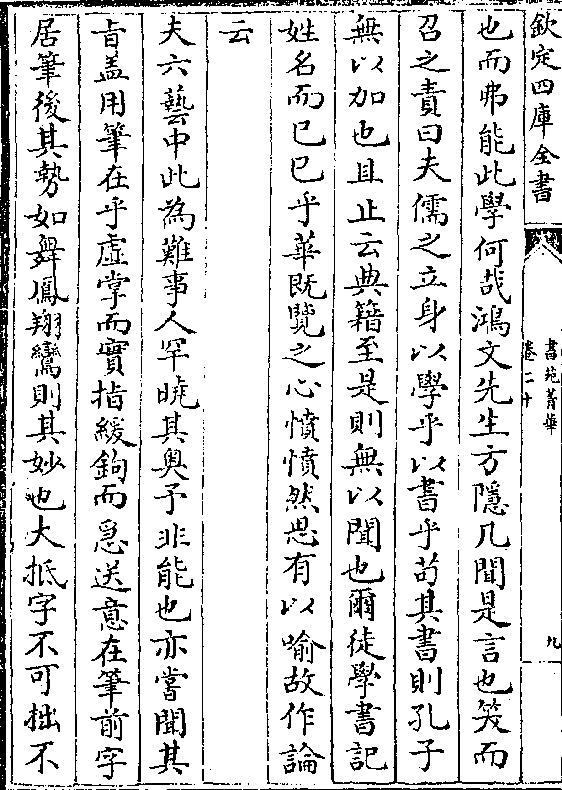 欽定四庫全書
書苑菁華
卷二十
九
也而弗能此學何哉鴻文先生方隱几聞是言也笑而
召之責曰夫儒之立身以學乎以書乎茍其書則孔子
無以加也且止云典籍至是則無以聞也爾徒學書記
姓名而已已乎華既覽之心憤憤然思有以喻故作論
云
夫六藝中此為難事人罕曉其奥予非能也亦嘗聞其
㫖盖用筆在乎虚掌而實指緩鉤而急送意在筆前字
居筆後其勢如舞鳳翔鸞則其妙也大抵字不可拙不